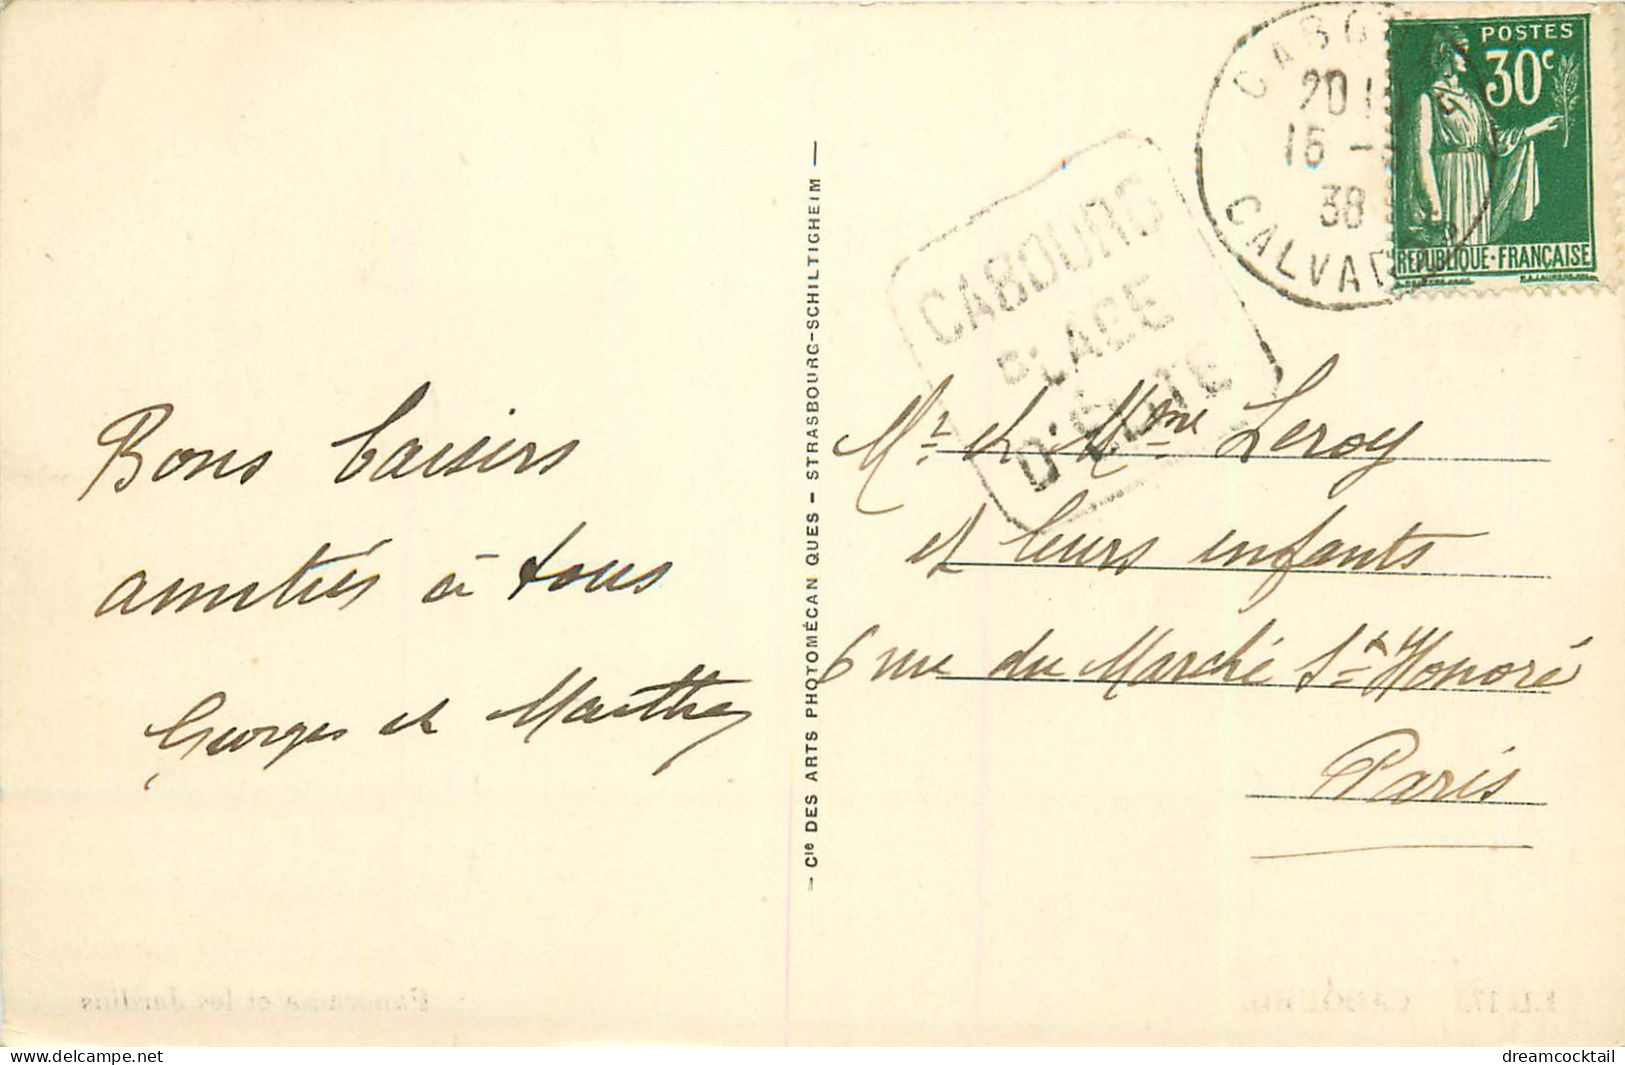 Bons baisers
amitiés à tous
Georges et Marthe
- Cie DES ARTS PHOTOMÉCAN QUES - STRASBOURG-SCHILTIGHEIM -
CABOURG
PLACE
D'ÉLITE
CABO
20 15
16 -
38
CALVADOS
POSTES
30c
REPUBLIQUE·FRANÇAISE
Mr et Mme Leroy
et leurs enfants
6 rue du Marché St Honoré
Paris
Panorama et les Jardins
173 CABOURG
dreamcocktail